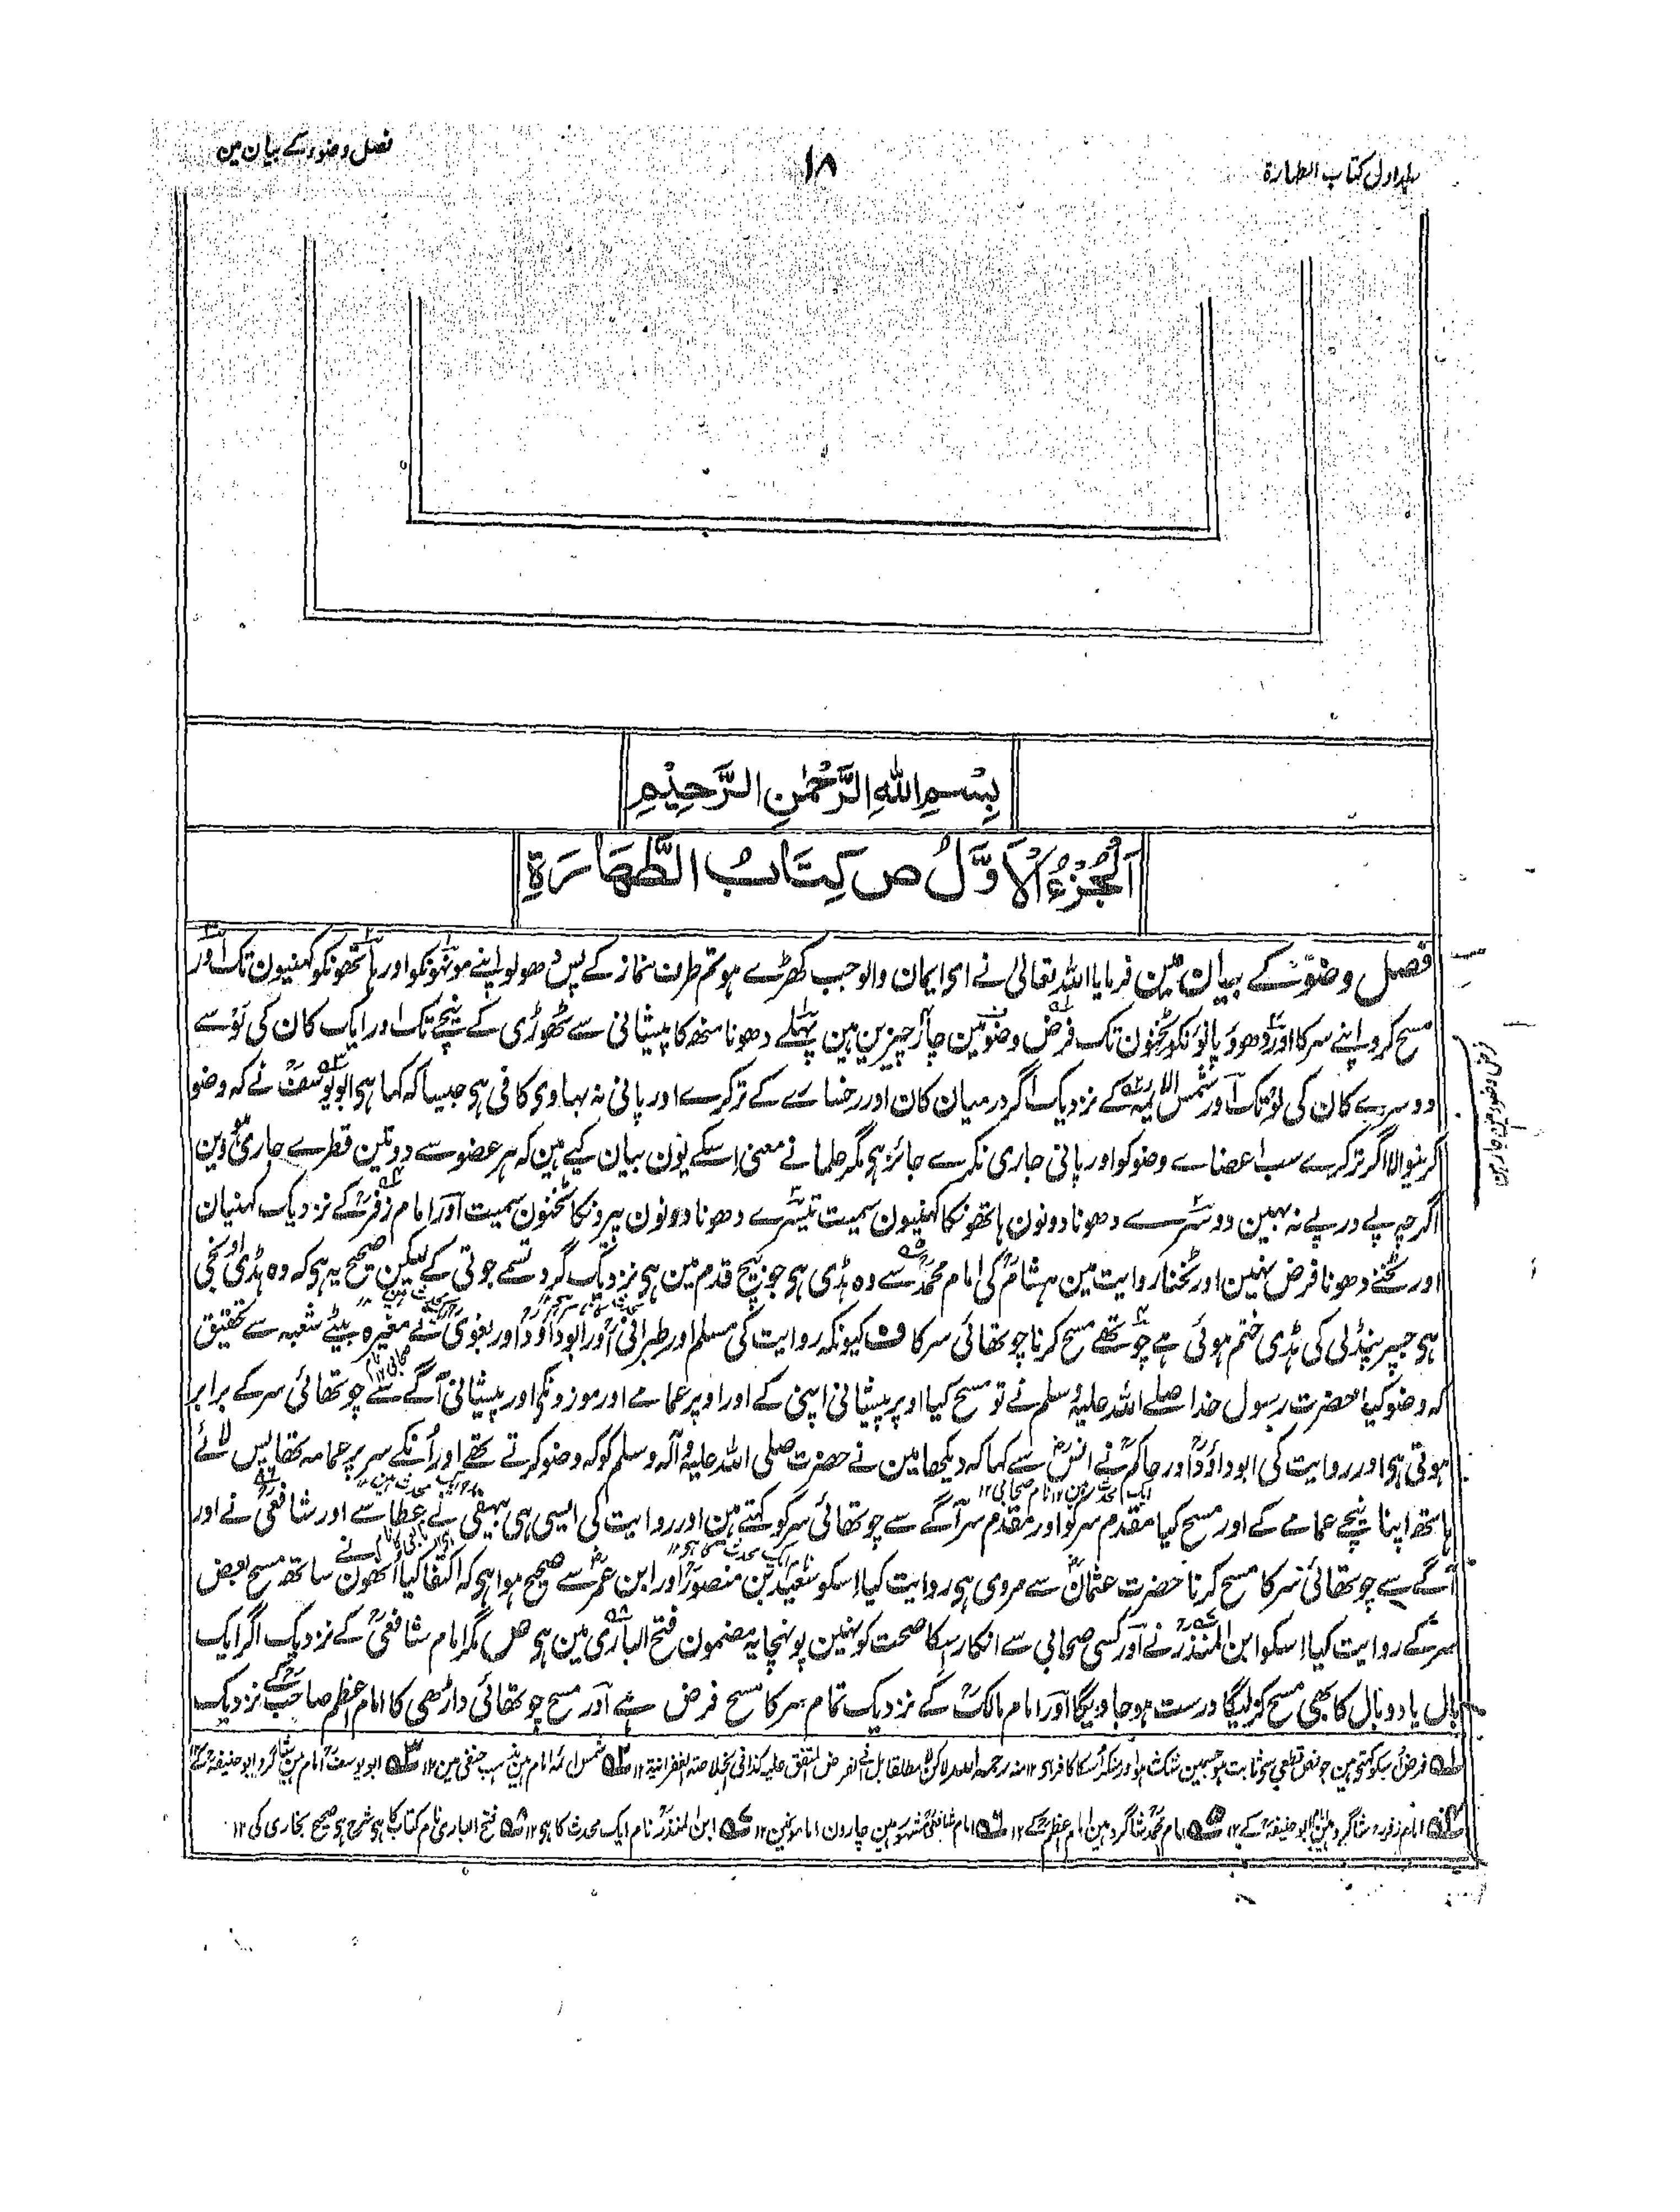 جلد اول کتاب الطہارۃ
۱۸
فصل وضو کے بیان مین
بِسْمِ اللهِ الرَّحْمٰنِ الرَّحِيْمِ
اَلْجُزْءُ الْاَوَّلُ ص كِتَابُ الطَّهَارَةِ
فصل وضو کے بیان مین فرمایا اللہ تعالیٰ نے ای ایمان والو جب کھڑے ہو تم طرف نماز کے پس دھولو اپنے مونہونکو اور ہاتھونکو کہنیون تک اور
مسح کرو اپنے سر کا اور دھوؤ پانوَنکو ٹخنون تک فرض وضو مین چار چیزین ہین پہلے دھونا منھ کا پیشانی سے ٹھوڑی کے نیچے تک اور ایک کان کی لَو سے
دوسرے کان کی لَو تک اور شمس الائمہ کے نزدیک اگر درمیان کان اور رخسارے کے تر کرے اور پانی نہ بہاوی کافی ہی جیسا کہ کہا ہی ابو یوسف نے کہ وضو
کرنیوالا اگر تر کرے سب اعضاے وضو کو اور پانی جاری نکرے جائز ہی مگر علما نے معنی اسکے یون بیان کیے ہین کہ ہر عضو سے دو تین قطرے جاری ہووین
اگرچہ پے در پے نہ بہین دوسرے دھونا دونون ہاتھونکا کہنیون سمیت تیسرے دھونا دونون پیرونکا ٹخنون سمیت اور امام زفر کے نزدیک کہنیان
اور ٹخنے دھونا فرض نہین اور ٹخنا روایت مین ہشام کی امام محمد سے وہ ہڈی ہی جو بیچ قدم مین ہی نزدیک گرد تسمے جوتی کے لیکن صحیح یہ ہی کہ وہ ہڈی اونچی
ہی جسپر پنڈلی کی ہڈی ختم ہوئی ہے چوتھے مسح کرنا چوتھائی سر کا ف کیونکہ روایت کی مسلم اور طبرانی اور ابو داؤد اور بغوی نے مغیرہ بیٹے شعبہ سے تحقیق
کہ وضو کیا حضرت رسول خدا صلے اللہ علیہ وسلم نے تو مسح کیا اوپر پیشانی اپنی کے اور اوپر عمامے اور موزونکی اور پیشانی آگے سے چوتھائی سر کے برابر
ہوتی ہی اور روایت کی ابو داؤد اور حاکم نے انس سے کہا کہ دیکھا مین نے حضرت صلی اللہ علیہ وآلہ وسلم کو کہ وضو کرتے تھے اور اُنکے سر پر عمامہ تھا پس لائے
ہاتھ اپنا نیچے عمامے کے اور مسح کیا مقدم سر کو اور مقدم سر آگے سے چوتھائی سر کو کہتے ہین اور روایت کی ایسی ہی بیہقی نے عطا سے اور شافعی نے اور
آگے سے چوتھائی سر کا مسح کرنا حضرت عثمان سے مروی ہی روایت کیا اسکو سعید بن منصور اور ابن عمر سے صحیح ہوا ہی کہ اکتفا کیا اُنھون نے ساتھ مسح بعض
سر کے روایت کیا اسکو ابن المنذر نے اور کسی صحابی سے انکار اسکا صحت کو نہین پونہچا یہ مضمون فتح الباری مین ہی ص مگر امام شافعی کے نزدیک اگر ایک
بال یا دو بال کا بھی مسح کر لیگا درست ہو جاویگا اور امام مالک کے نزدیک تمام سر کا مسح فرض ہے اور مسح چوتھائی داڑھی کا امام اعظم صاحب کے نزدیک
فرض اُسکو کہتے ہین جو نص قطعی سے ثابت ہو جسمین شک نہو اور منکر اُسکا کافر ہی ۱۲ شمس الائمہ امام ہین مذہب حنفی مین ۱۲ ابو یوسف امام ہین شاگرد ابو حنیفہ کے
امام زفر شاگرد ہین امام ابو حنیفہ کے ۱۲ امام محمد شاگرد ہین امام اعظم کے ۱۲ امام شافعی مشہور ہین چارون امامون مین ۱۲ ابن المنذر نام ایک محدث کا ہی ۱۲ فتح الباری نام کتاب کا ہی شرح ہی صحیح بخاری کی ۱۲